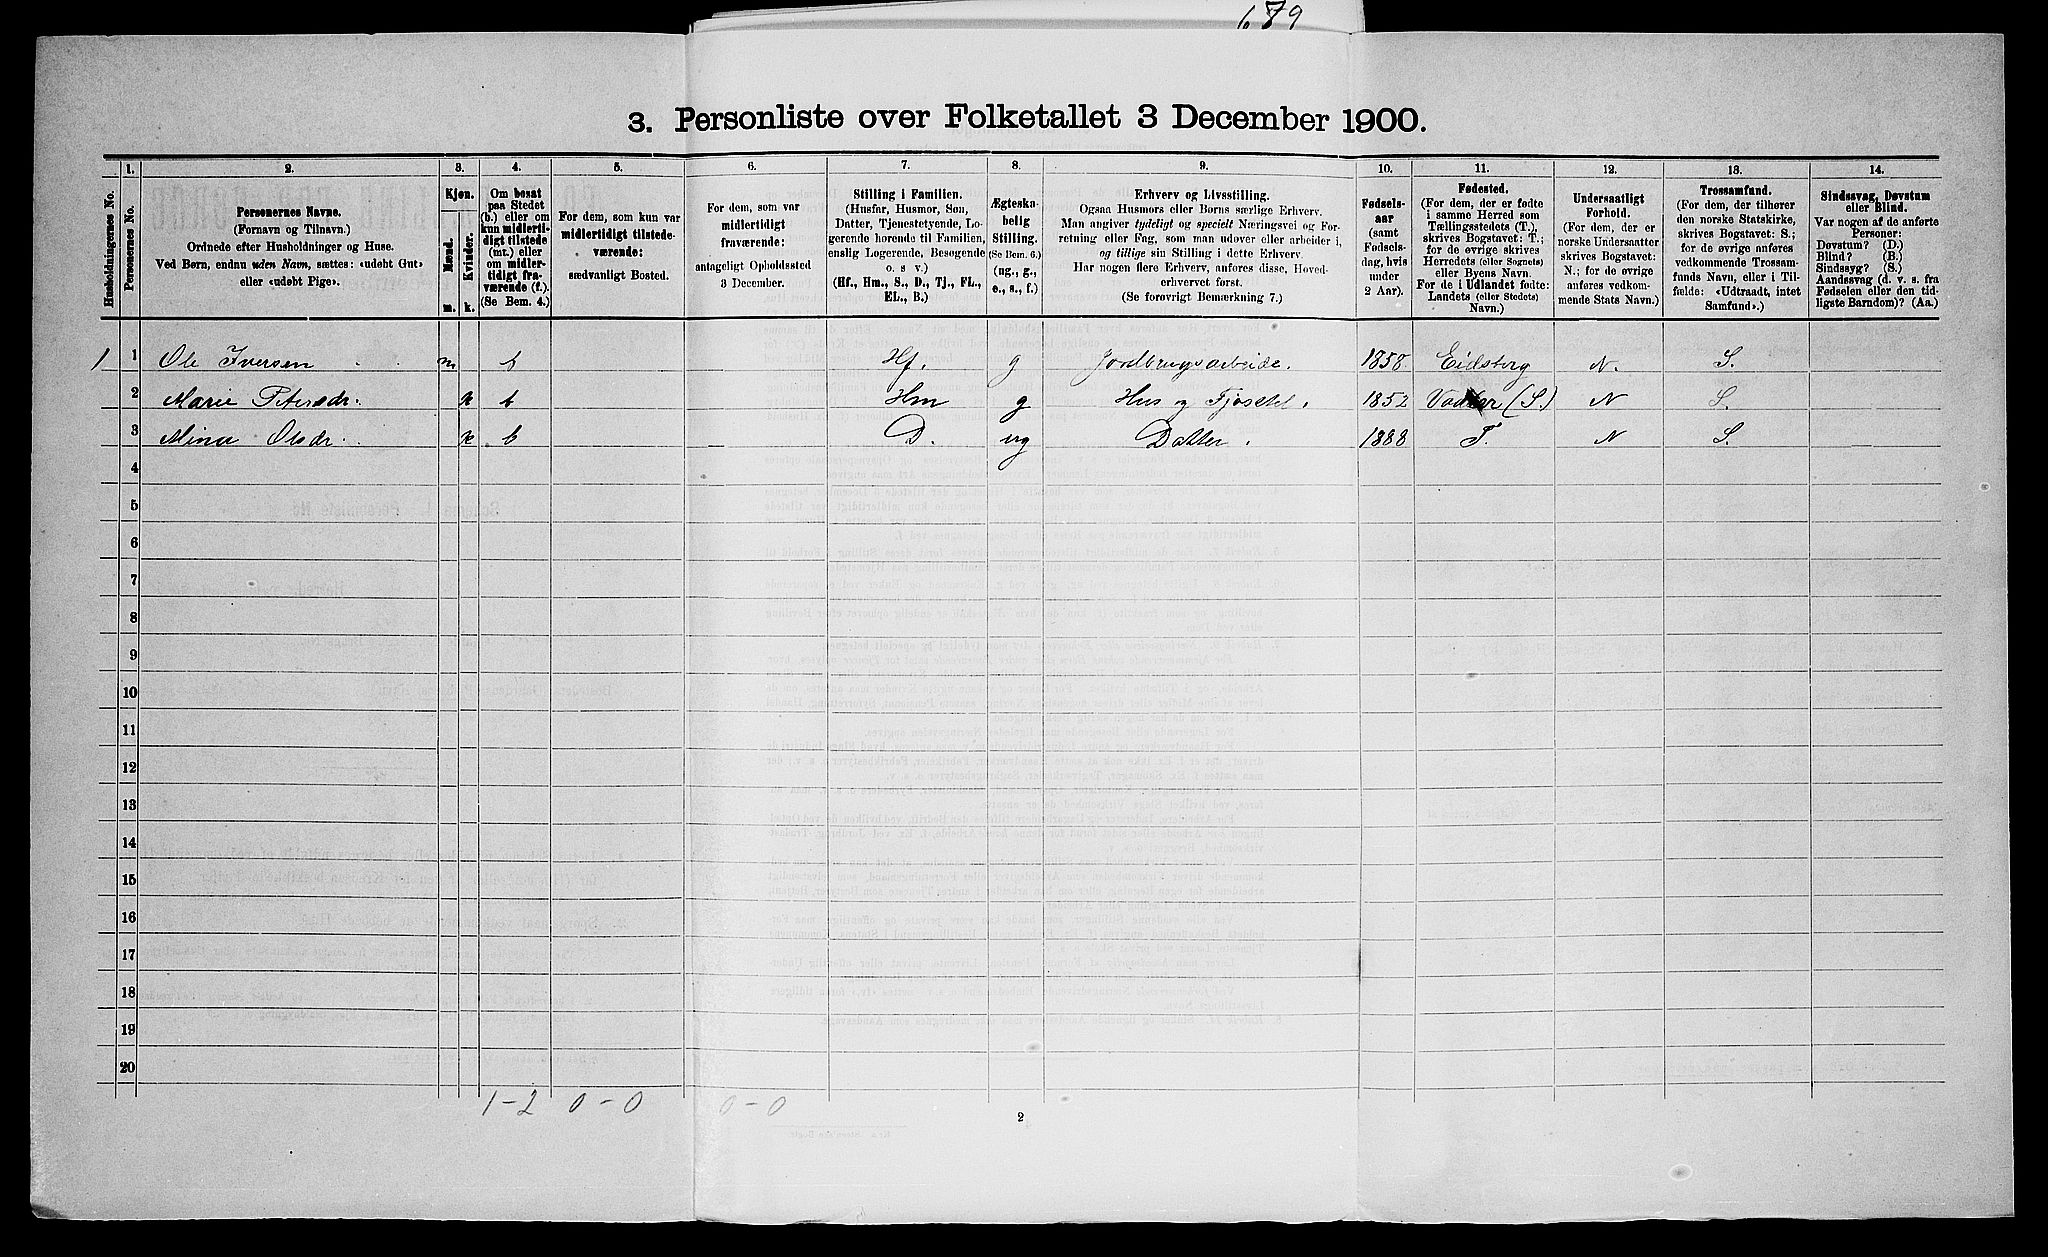 679
3. Personliste over Folketallet 3 December 1900.
1. 2. 3. 4. 5. 6. 7. 8. 9. 10. 11. 12. 13. 14.
Husholdningernes No.
Personernes No.
Personernes Navne.
(Fornavn og Tilnavn.)
Ordnede efter Husholdninger og Huse.
Ved Børn, endnu uden Navn, sættes: «udøbt Gut»
eller «udøbt Pige».
Kjøn.
Mænd.
Kvinder.
m. k.
Om bosat
paa Stedet
(b.) eller om
kun midlertidigt
tilstede
(mt.) eller
om midlertidigt
fraværende (f.).
(Se Bem. 4.)
For dem, som kun var
midlertidigt tilstedeværende:
sædvanligt Bosted.
For dem, som var
midlertidigt
fraværende:
antageligt Opholdssted
3 December.
Stilling i Familien.
(Husfar, Husmor, Søn,
Datter, Tjenestetyende, Logerende
hørende til Familien,
enslig Logerende, Besøgende
o. s v.)
(Hf., Hm., S., D., Tj., FL.,
EL., B.)
Ægteskabelig
Stilling.
(Se Bem. 6.)
(ug., g.,
e., s., f.)
Erhverv og Livsstilling.
Ogsaa Husmors eller Børns særlige Erhverv.
Man angiver tydeligt og specielt Næringsvei og Forretning
eller Fag, som man udøver eller arbeider i,
og tillige sin Stilling i dette Erhverv.
Har nogen flere Erhverv, anføres disse, Hovederhvervet
først.
(Se forøvrigt Bemærkning 7.)
Fødselsaar
(samt
Fødselsdag,
hvis
under
2 Aar).
Fødested.
(For dem, der er fødte
i samme Herred som
Tællingsstedets (T.),
skrives Bogstavet: T.;
for de øvrige skrives
Herredets (eller Sognets)
eller Byens Navn.
For de i Udlandet fødte:
Landets (eller Stedets)
Navn.)
Undersaatligt
Forhold.
(For dem, der er
norske Undersaatter
skrives Bogstavet:
N.; for de øvrige
anføres vedkommende
Stats Navn.)
Trossamfund.
(For dem, der tilhører
den norske Statskirke,
skrives Bogstavet: S.;
for de øvrige anføres
vedkommende Trossamfunds
Navn, eller i Tilfælde:
«Udtraadt, intet
Samfund».)
Sindssvag, Døvstum
eller Blind.
Var nogen af de anførte
Personer:
Døvstum? (D.)
Blind? (B.)
Sindssyg? (S.)
Aandssvag (d. v. s. fra
Fødselen eller den tidligste
Barndom)? (Aa.)
1 1 Ole Iversen m b Hf. g Jordbrugsarbeide. 1858 Eidsberg N. S.
2 Marie Petersdr. k b Hm g Hus og Fjøsstel. 1852 (S.) N S.
3 Mina Olsdr. k b D. ug Datter. 1888 T. N S.
4
5
6
7
8
9
10
11
12
13
14
15
16
17
18
19
20
1-2 0-0 0-0
2